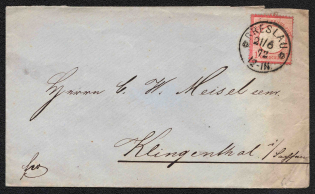 BRESLAU
21/6
72
12-1N
Herrn C. W. Meisel sen.
Klingenthal i/Sachsen
fro